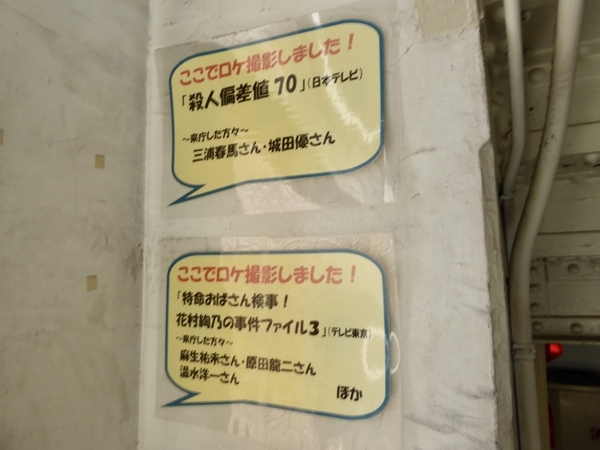 ここでロケ撮影しました!
「殺人偏差値70」(日本テレビ)
~来庁した方々~
三浦春馬さん・城田優さん
ここでロケ撮影しました!
「特命おばさん検事!
花村絢乃の事件ファイル3」(テレビ東京)
~来庁した方々~
麻生祐未さん・原田龍二さん
温水洋一さん
ほか